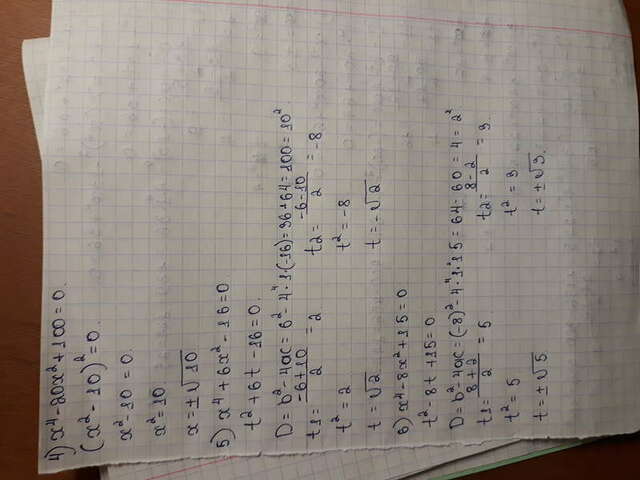 4) x⁴-20x²+100=0.
(x²-10)²=0.
x²-10=0.
x²=10.
x=±√10
5) x⁴+6x²-16=0
t²+6t-16=0.
D=b²-4ac=6²-4·1·(-16)=36+64=100=10²
t1=(-6+10)/2=2 t2=(-6-10)/2=-8
t²=2 t²=-8
t=√2 t=-√2
6) x⁴-8x²+15=0
t²-8t+15=0
D=b²-4ac=(-8)²-4·1·15=64-60=4=2²
t1=(8+2)/2=5 t2=(8-2)/2=3.
t²=5 t²=3
t=±√5 t=±√3.